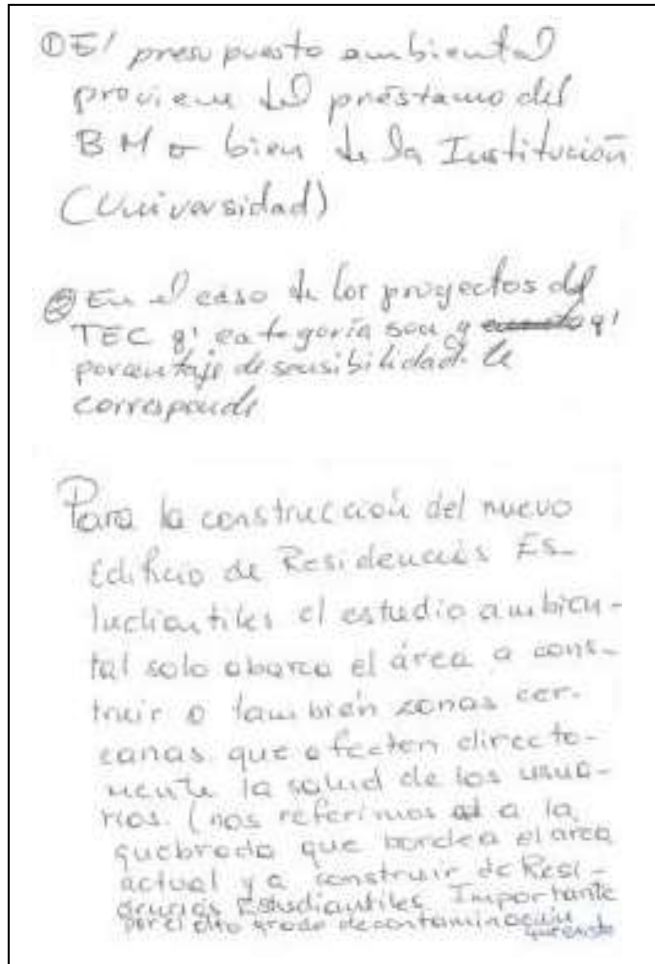 ① El presupuesto ambiental
proviene del préstamo del
BM o bien de la Institución
(Universidad)
② En el caso de los proyectos del
TEC q' categoría son y q'
porcentaje de sensibilidad le
corresponde
Para la construcción del nuevo
Edificio de Residencias Es-
tudiantiles el estudio ambien-
tal solo abarca el área a cons-
truir o también zonas cer-
canas que afecten directa-
mente la salud de los usua-
rios. (nos referimos a la
quebrada que bordea el área
actual y a construir de Resi-
dencias Estudiantiles Importante
por el alto grado de contaminación